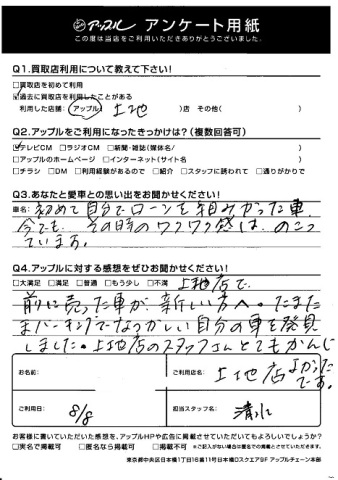 アップル アンケート用紙
この度は当店をご利用いただきありがとうございました。
Q1.買取店利用について教えて下さい!
□買取店を初めて利用
☑過去に買取店を利用したことがある
利用した店舗:(アップル) 上地 )店 その他( )
Q2.アップルをご利用になったきっかけは?(複数回答可)
☑テレビCM □ラジオCM □新聞・雑誌(媒体名/ )
□アップルのホームページ □インターネット(サイト名 )
□チラシ □DM □利用経験があるので □紹介 □スタッフに誘われて □通りがかりで
Q3.あなたと愛車との思い出をお聞かせください!
車名: 初めて自分でローンを組みかった車、
今でも、その時のワクワク感は、のこっ
ています。
Q4.アップルに対する感想をぜひお聞かせください!
□大満足 □満足 □普通 □もう少し □不満 上地店で、
前に売った車が、新しい方へ。たまた
まパーキングでなつかしい自分の車を発見
しました。上地店のスタッフさんとてもかんじ
よかった
です。
お名前:
ご利用店名: 上地店
ご利用日: 8/8
担当スタッフ名: 清水
お客様に書いていただいた感想を、アップルHPや広告に掲載させていただいてもよろしいでしょうか?
□実名で掲載可 □匿名なら掲載可 □不可 ※ご記入がない場合は匿名での掲載とさせていただきます。
東京都中央区日本橋1丁目16番11号日本橋Dスクエア9F アップルチェーン本部